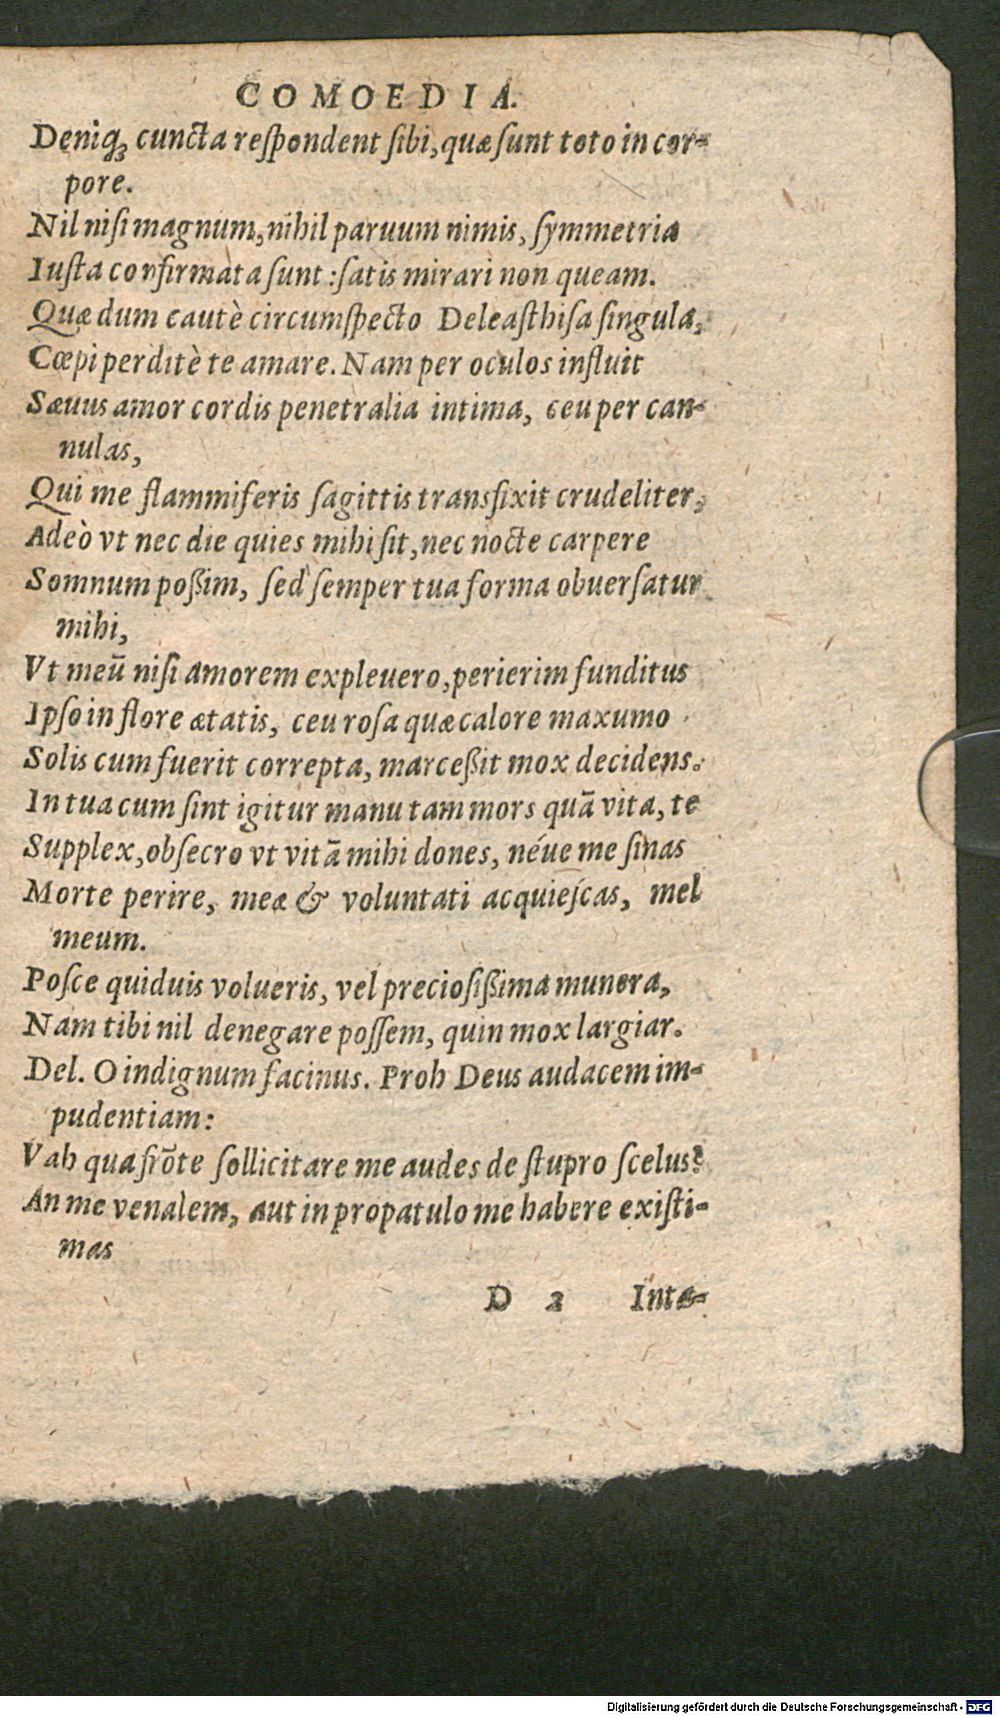 COMOEDIA.
Deniq́ꝫ cuncta reſpondent ſibi, quæ ſunt toto in cor-
pore.
Nil niſi magnum, nihil paruum nimis, ſymmetria
Iuſta confirmata ſunt: ſatis mirari non queam.
Quæ dum cautè circumſpecto Deleaſthiſa ſingula,
Cœpi perditè te amare. Nam per oculos influit
Sæuus amor cordis penetralia intima, ceu per can-
nulas,
Qui me flammiferis ſagittis transfixit crudeliter,
Adeò vt nec die quies mihi ſit, nec nocte carpere
Somnum poßim, ſed ſemper tua forma obuerſatur
mihi,
Vt meũ niſi amorem expleuero, perierim funditus
Ipſo in flore ætatis, ceu roſa quæ calore maxumo
Solis cum fuerit correpta, marceßit mox decidens.
In tua cum ſint igitur manu tam mors quã vita, te
Supplex, obſecro vt vitã mihi dones, néue me ſinas
Morte perire, meæ & voluntati acquieſcas, mel
meum.
Poſce quiduis volueris, vel precioſißima munera,
Nam tibi nil denegare poſſem, quin mox largiar.
Del. O indignum facinus. Proh Deus audacem im-
pudentiam:
Vah qua frõte ſollicitare me audes de ſtupro ſcelus?
An me venalem, aut in propatulo me habere exiſti-
mas
D 2 Inte-
Digitalisierung gefördert durch die Deutsche Forschungsgemeinschaft - DFG